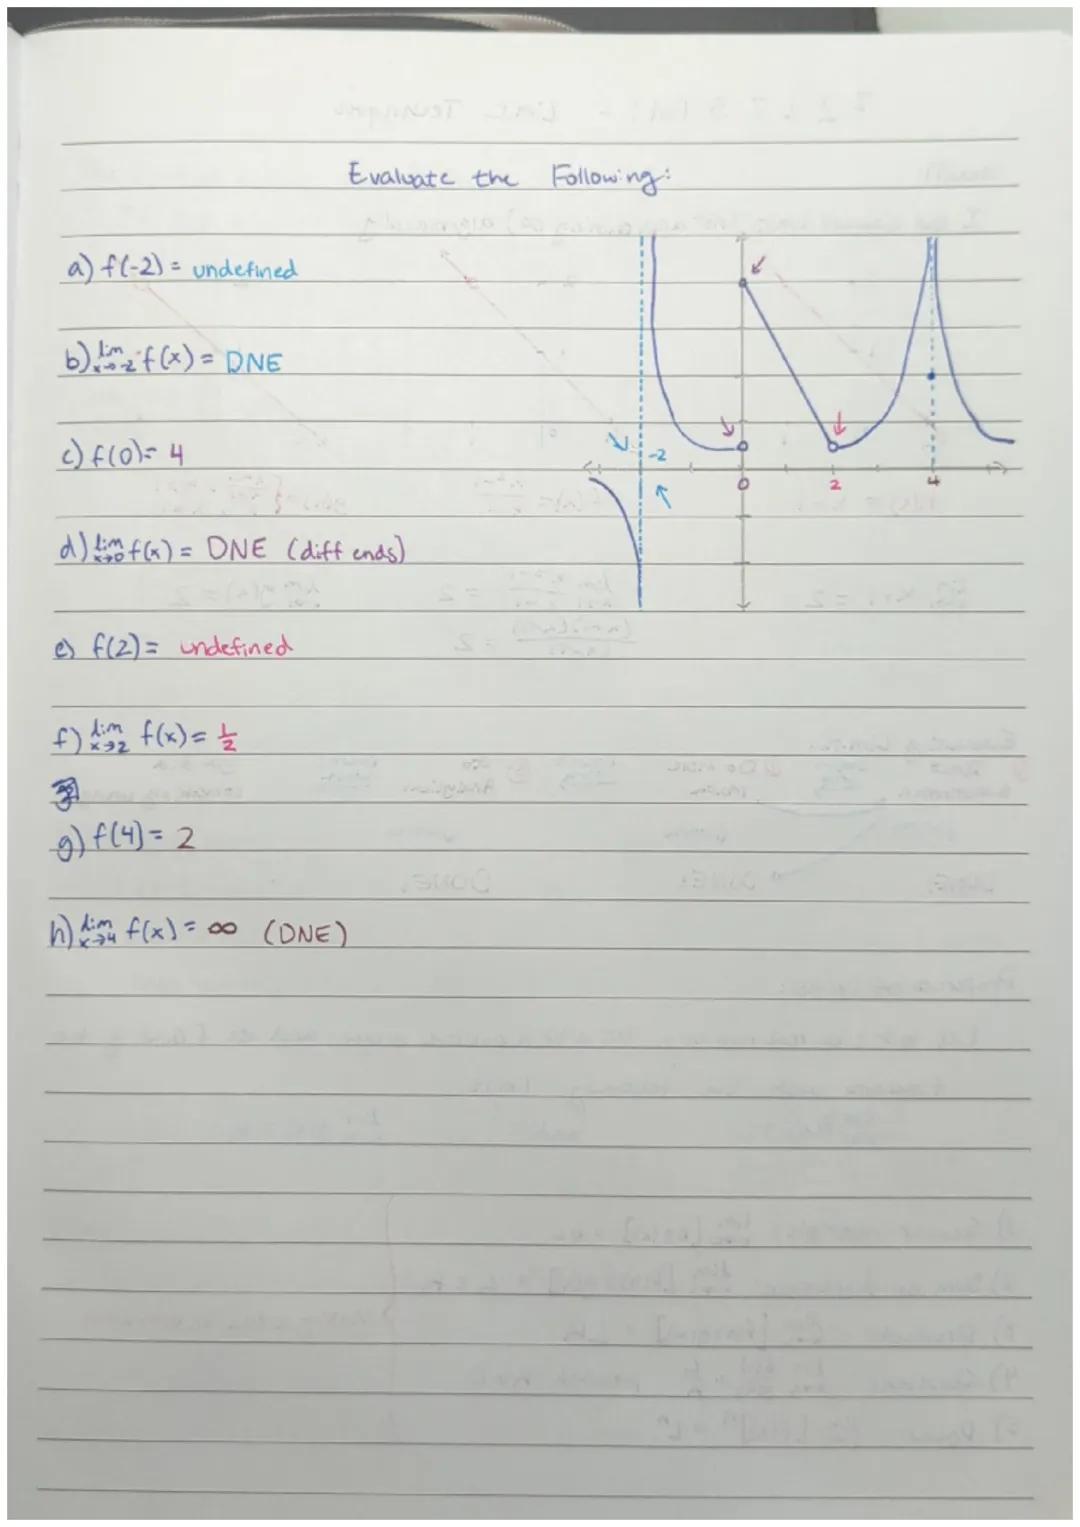 Evaluate the Following:
a) f(-2) = undefined
b) lim x→-2 f(x) = DNE
c) f(0) = 4
d) lim x→0 f(x) = DNE (diff ends)
e) f(2) = undefined
f) lim x→2 f(x) = 1/2
g) f(4) = 2
h) lim x→4 f(x) = ∞ (DNE)
-2
0 2 4